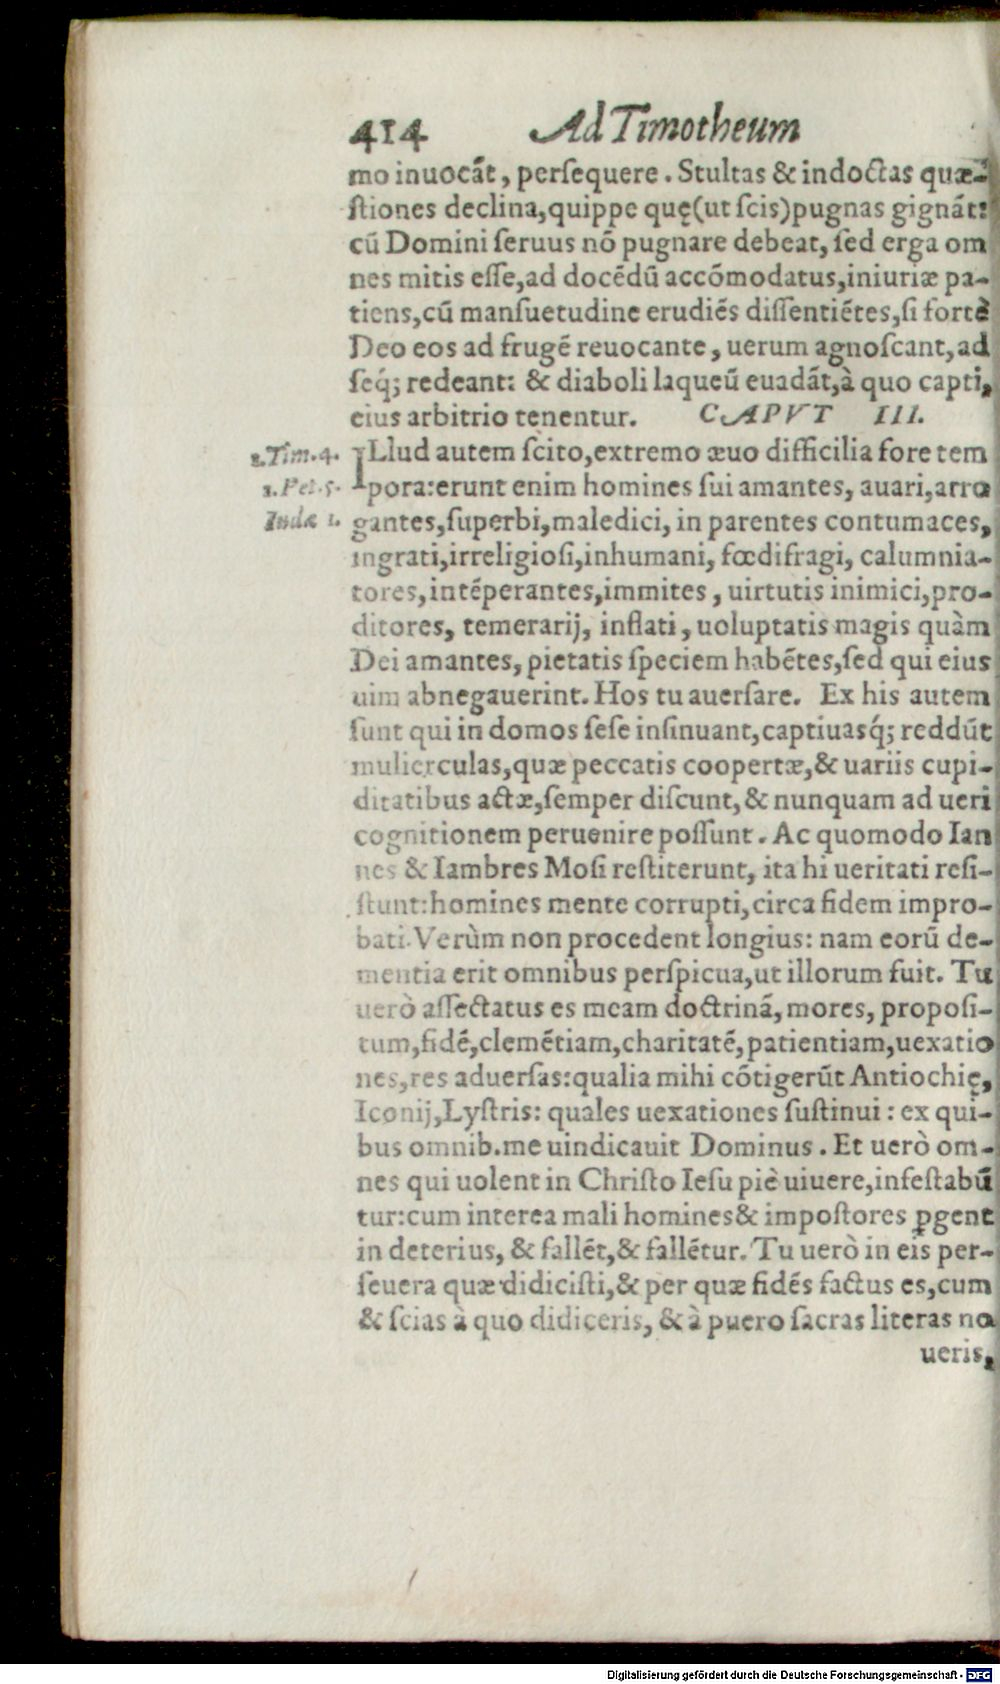 414 Ad Timotheum
mo inuocãt, perſequere. Stultas & indoctas quæ-
ſtiones declina, quippe quę (ut ſcis) pugnas gignãt:
cũ Domini ſeruus nõ pugnare debeat, ſed erga om
nes mitis eſſe, ad docẽdũ accõmodatus, iniuriæ pa-
tiens, cũ manſuetudine erudiẽs diſſentiẽtes, ſi fortè
Deo eos ad frugẽ reuocante, uerum agnoſcant, ad
ſeq́; redeant: & diaboli laqueũ euadãt, à quo capti,
eius arbitrio tenentur. CAPVT III.
1.Tim.4. ILlud autem ſcito, extremo æuo difficilia fore tem
2.Pet.5. pora: erunt enim homines ſui amantes, auari, arro
Iudæ 1. gantes, ſuperbi, maledici, in parentes contumaces,
ingrati, irreligioſi, inhumani, fœdifragi, calumnia-
tores, intẽperantes, immites, uirtutis inimici, pro-
ditores, temerarij, inflati, uoluptatis magis quàm
Dei amantes, pietatis ſpeciem habẽtes, ſed qui eius
uim abnegauerint. Hos tu auerſare. Ex his autem
ſunt qui in domos ſeſe inſinuant, captiuasq́; reddũt
mulierculas, quæ peccatis coopertæ, & uariis cupi-
ditatibus actæ, ſemper diſcunt, & nunquam ad ueri
cognitionem peruenire poſſunt. Ac quomodo Ian
nes & Iambres Moſi reſtiterunt, ita hi ueritati reſi-
ſtunt: homines mente corrupti, circa fidem impro-
bati. Verùm non procedent longius: nam eorũ de-
mentia erit omnibus perſpicua, ut illorum fuit. Tu
uerò aſſectatus es meam doctrinã, mores, propoſi-
tum, fidẽ, clemẽtiam, charitatẽ, patientiam, uexatio
nes, res aduerſas: qualia mihi cõtigerũt Antiochię,
Iconij, Lyſtris: quales uexationes ſuſtinui: ex qui-
bus omnib. me uindicauit Dominus. Et uerò om-
nes qui uolent in Chriſto Ieſu piè uiuere, infeſtabũ
tur: cum interea mali homines & impoſtores ꝑgent
in deterius, & fallẽt, & fallẽtur. Tu uerò in eis per-
ſeuera quæ didiciſti, & per quæ fidẽs factus es, cum
& ſcias à quo didiceris, & à puero ſacras literas no
ueris,
Digitalisierung gefördert durch die Deutsche Forschungsgemeinschaft - DFG